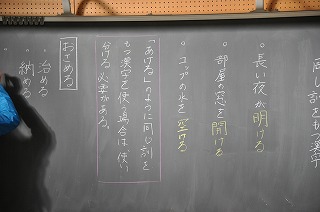 同じ訓をもつ漢字
◦ 長い夜が明ける
◦ 部屋の窓を開ける
◦ コップの水を空ける
「あける」のように同じ訓を
もつ漢字を使う場合は、使い
分ける必要がある。
おさめる
◦ 治める
◦ 納める